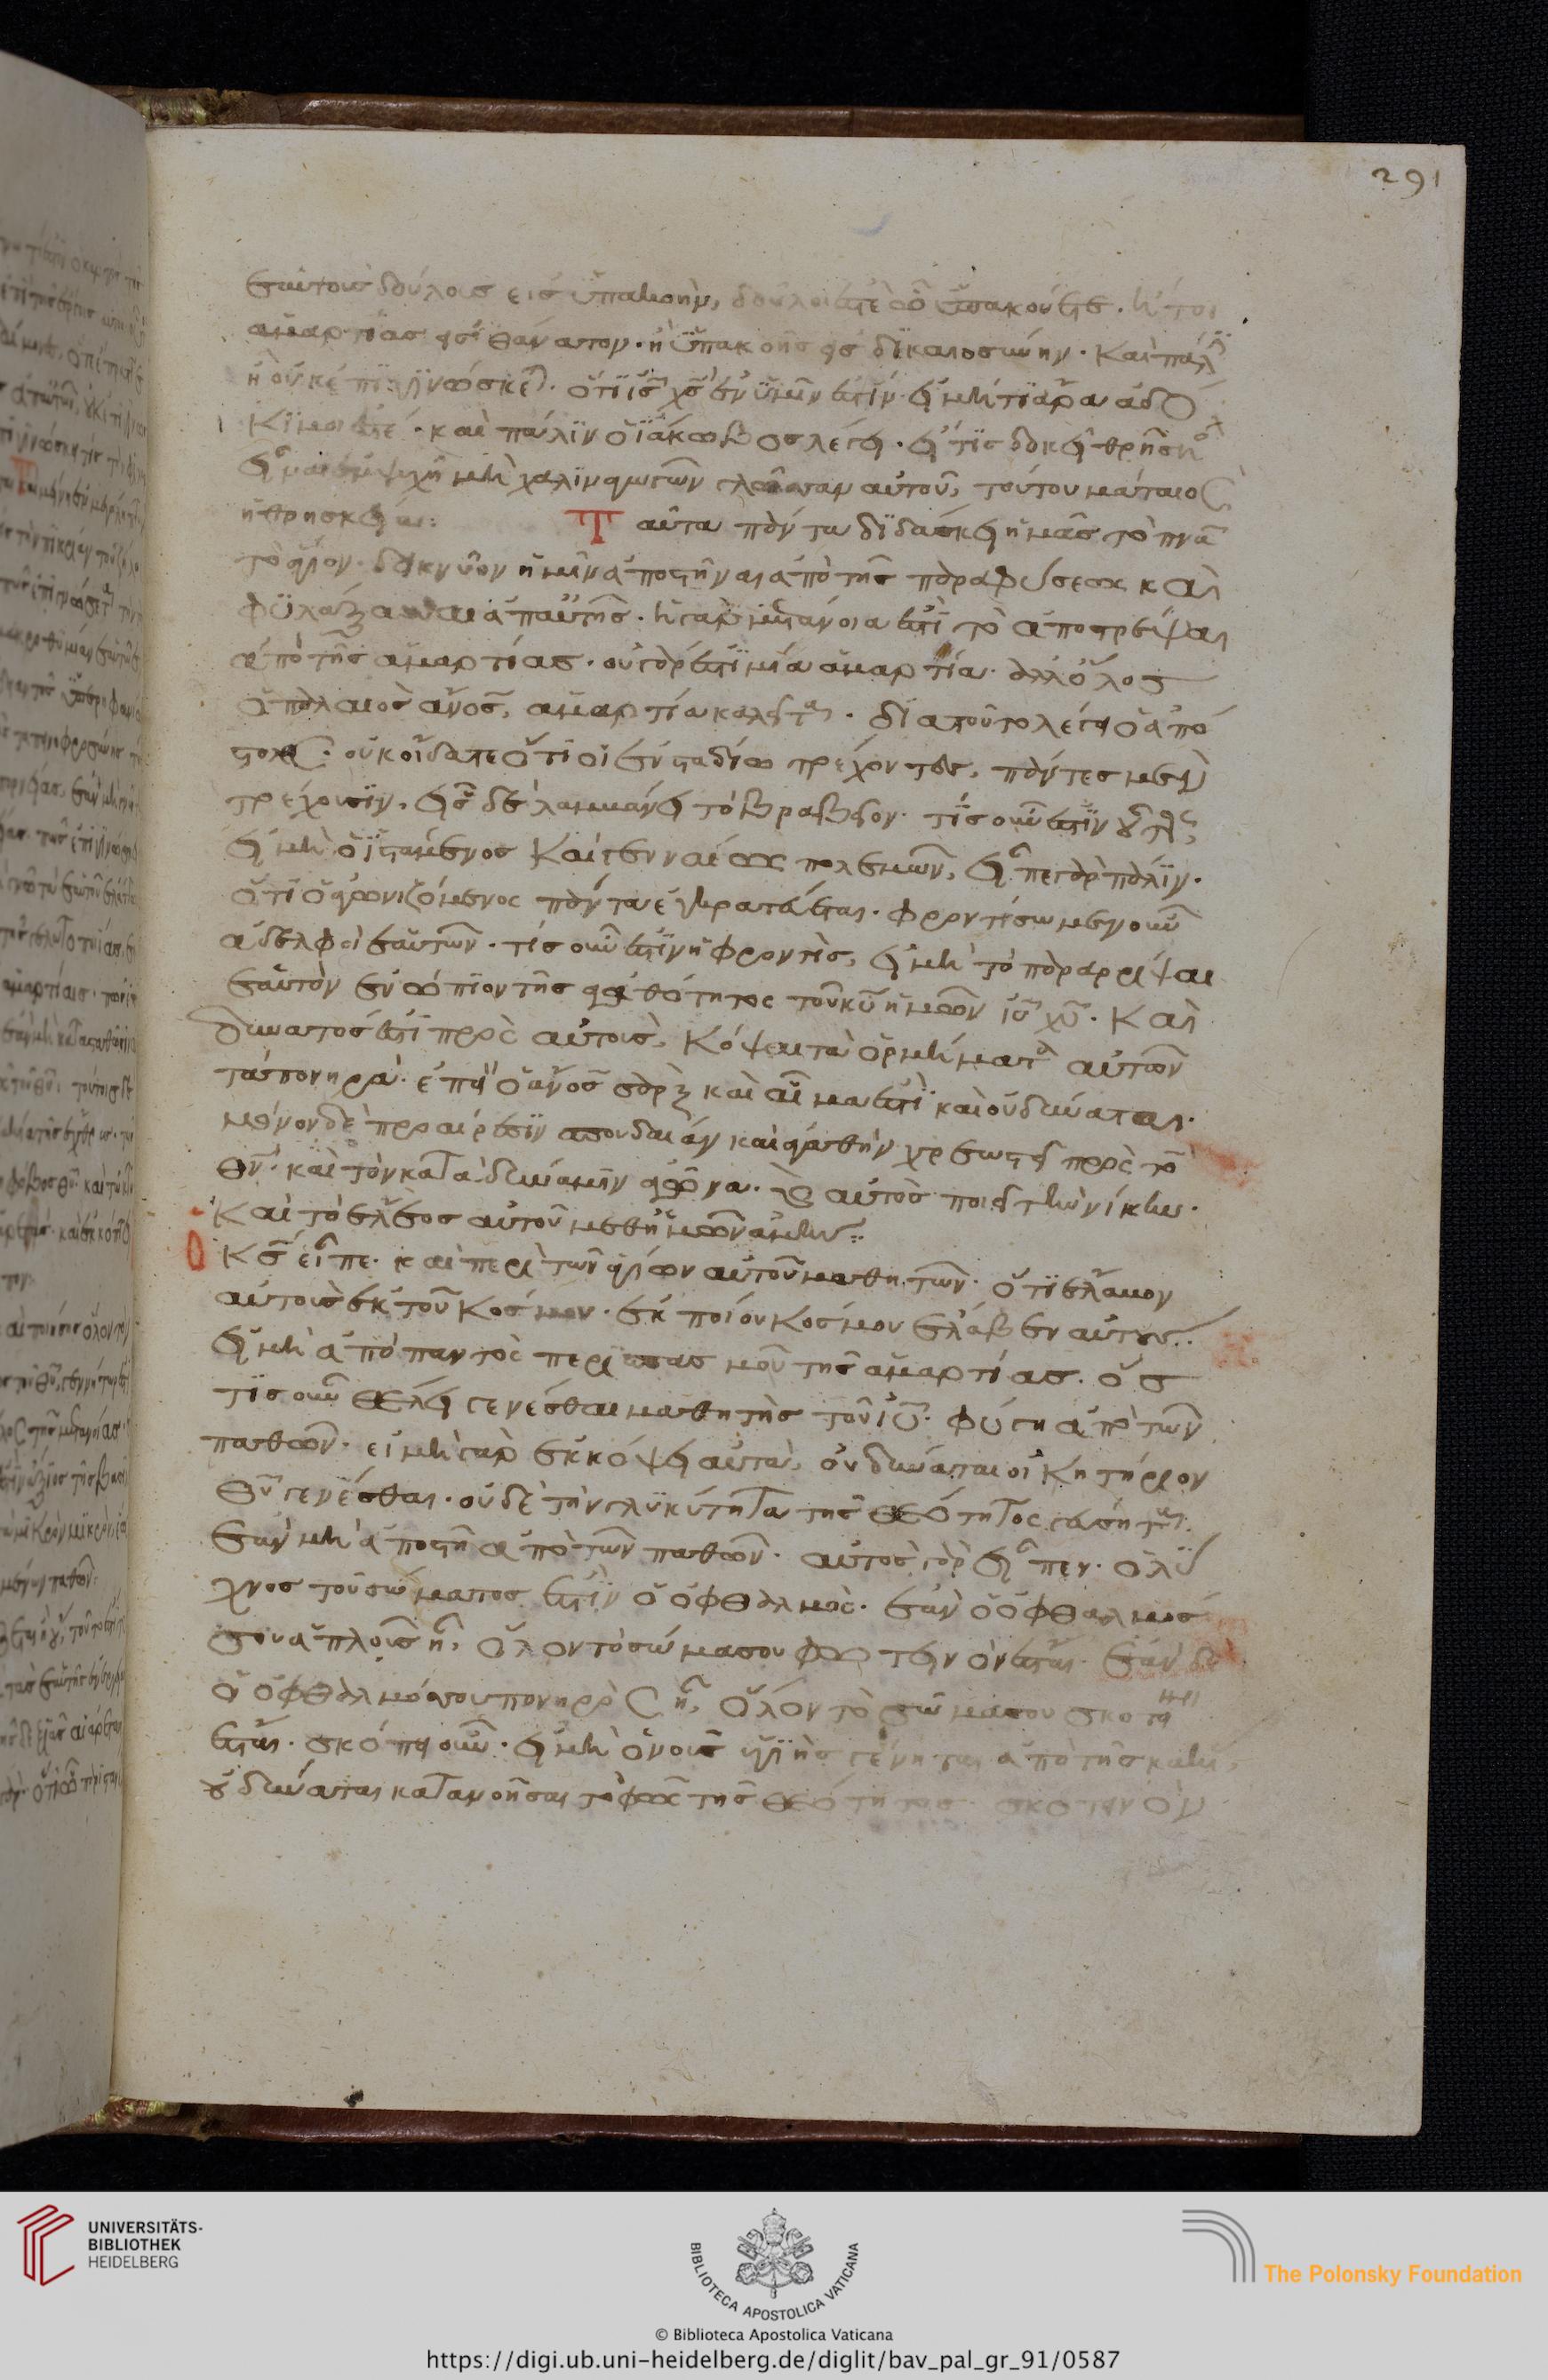 291
ἑαυτοὺς δούλους εἰς ὑπακοὴν, δοῦλοί ἐστε ᾧ ὑπακούετε. ἤτοι
ἁμαρτίας εἰς θάνατον. ἢ ὑπακοῆς εἰς δικαιοσύνην. Καὶ πάλϊ
ἢ οὐκ ἐπιγινώσκετε. ὅτι ις χς ἐν ὑμῖν ἐστίν. εἰ μή τι ἄρα ἀδό
κιμοί ἐστε. καὶ πάλιν ὁ ἰάκωβος λέγει. εἴ τις δοκεῖ θρῆσκος
εἶναι ἐν ὑμῖν μὴ χαλιναγωγῶν γλῶτταν αὐτοῦ, τούτου μάταιος
ἡ θρησκεία: Ταῦτα πάντα διδάσκει ἡμᾶς τὸ πνα
τὸ ἅγιον. δεικνύον ἡμῖν ἀποστῆναι ἀπὸ τῆς παραφύσεως καὶ
φυλάξασθαι ἀπ αὐτῆς. ἡ γὰρ μετάνοια ἐστὶ τὸ ἀποστρέψαι
ἀπὸ τῆς ἁμαρτίας. οὐ γάρ ἐστι μία ἁμαρτία. ἀλλ ὅλος
ὁ παλαιὸς ἄνος, ἁμαρτία καλεῖται. διὰ τοῦτο λέγει ὁ ἀπό
στολος. οὐκ οἴδατε ὅτι οἱ ἐν σταδίω τρέχοντες, πάντες μὲν
τρέχουσιν, εἷς δὲ λαμμάνει τὸ βραβεῖον. τίς οὖν ἐστὶν οὗτος,
εἰ μὴ ὁ ἱστάμενος καὶ γενναίως πολεμῶν, εἶπε γὰρ πάλιν.
ὅτι ὁ ἀγωνιζόμενος πάντα ἐγκρατεύεται. φροντίσωμεν οὖν
ἀδελφοὶ ἑαυτῶν. τίς οὖν ἐστὶν ἡ φροντὶς, εἰ μὴ τὸ παραρίψαι
ἑαυτὸν ἐνώπιον τῆς ἀγαθότητος τοῦ κυ ἡμῶν ιυ χυ. Καὶ
δυνατός ἐστι πρὸς αὐτοὺς, κόψαι τὰ ὁρμήματα αὐτῶν
τὰ πονηρὰ. ἐπεὶ ὁ ἄνος σὰρξ καὶ αἷμα ἐστὶ καὶ οὐ δύναται.
μόνον δὲ προαίρεσιν σπουδαίαν καὶ ἀγαθὴν χρεωστεῖ πρὸς τὸν
θν. καὶ τὸν κατὰ δύναμιν ἀγῶνα. καὶ αὐτὸς ποιεῖ τὴν νίκην.
Καὶ τὸ ἔλεος αὐτοῦ μεθ ἡμῶν ἀμήν:
Ὁ κς εἶπε. καὶ περὶ τῶν ἁγίων αὐτοῦ μαθητῶν. ὅτι ἔλαβον
αὐτοὺς ἐκ τοῦ κόσμου. ἐκ ποίου κόσμου ἔλαβεν αὐτούς.
εἰ μὴ ἀπὸ παντὸς περισπασμοῦ τῆς ἁμαρτίας. ὅς
τις οὖν θέλει γενέσθαι μαθητὴς τοῦ ιυ. φύγη ἀπὸ τῶν
παθῶν. εἰ μὴ γὰρ ἐκκόψει αὐτὰ, οὐ δύναται οἰκητήριον
θυ γενέσθαι. οὐδὲ τὴν γλυκύτητα τῆς θεότητος γεύσηται.
ἐὰν μὴ ἀποστῆ ἀπὸ τῶν παθῶν. αὐτὸς γὰρ εἶπεν. ὁ λύ
χνος τοῦ σώματος ἐστὶν ὁ ὀφθαλμός. ἐὰν ὁ ὀφθαλμός
σου ἁπλοῦς ἦ, ὅλον τὸ σῶμα σου φωτεινὸν ἔσται. ἐὰν δὲ
ὁ ὀφθαλμός σου πονηρὸς ἦ, ὅλον τὸ σῶμα σου σκοτεινὸν
ἔσται. σκόπει οὖν. εἰ μὴ ὁ νοῦς ὑγιὴς γένηται ἀπὸ τῆς κακίας,
οὐ δύναται κατανοῆσαι τὸ φῶς τῆς θεότητος. σκοτεινὸν
UNIVERSITÄTS-
BIBLIOTHEK
HEIDELBERG
BIBLIOTECA APOSTOLICA VATICANA
The Polonsky Foundation
© Biblioteca Apostolica Vaticana
https://digi.ub.uni-heidelberg.de/diglit/bav_pal_gr_91/0587